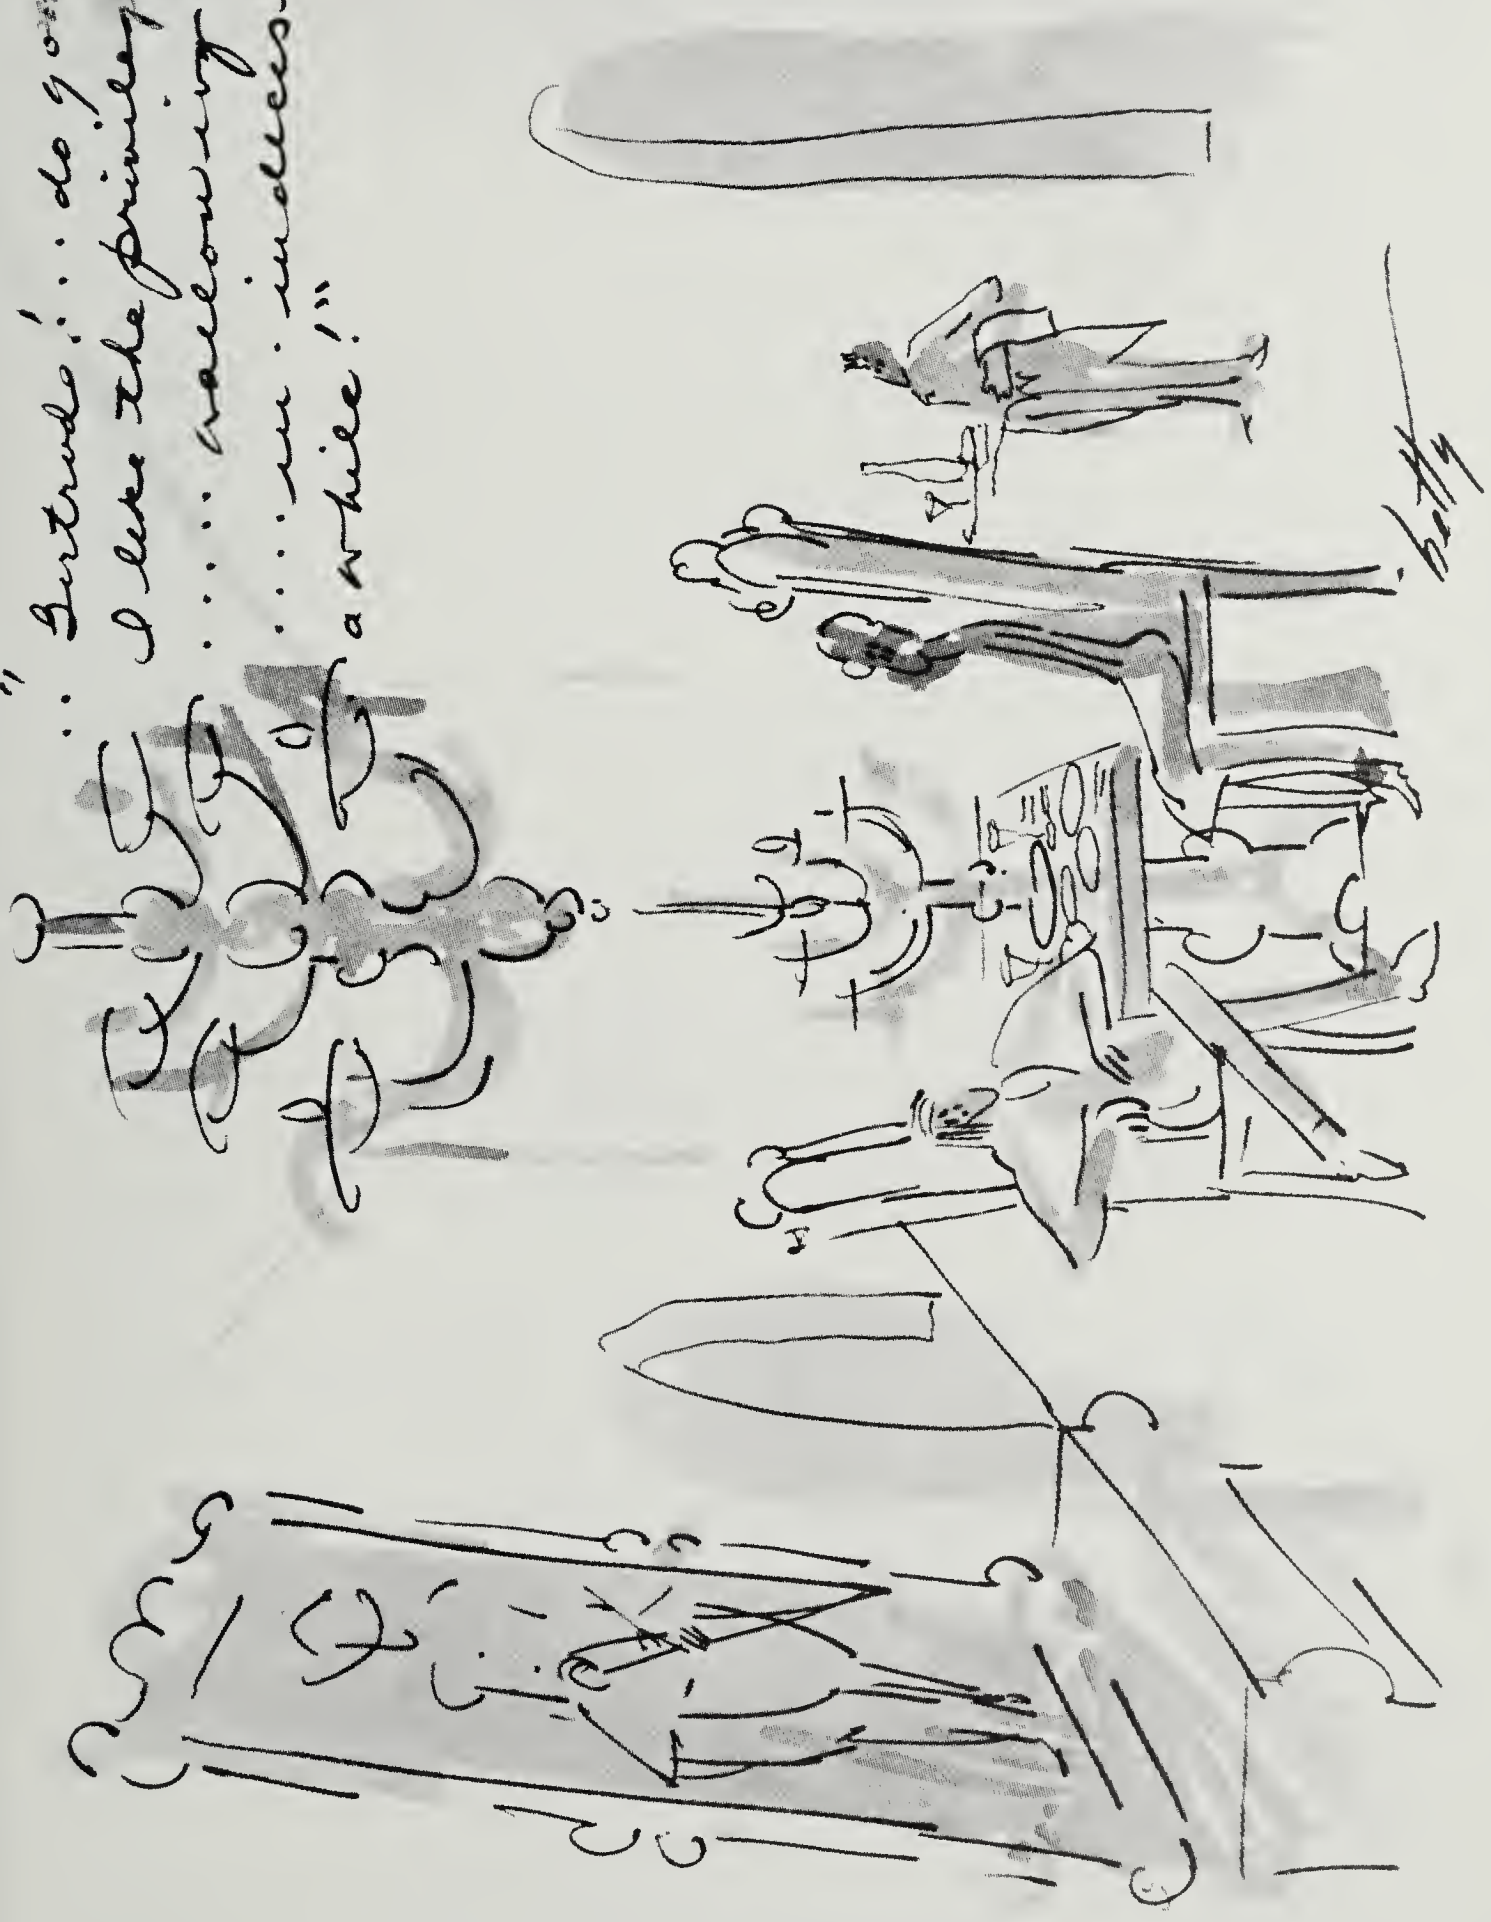 ".. Gertrude! ... do you
I like the privileg
..... wallowing
.... in . indecis-
a while!"
Betty